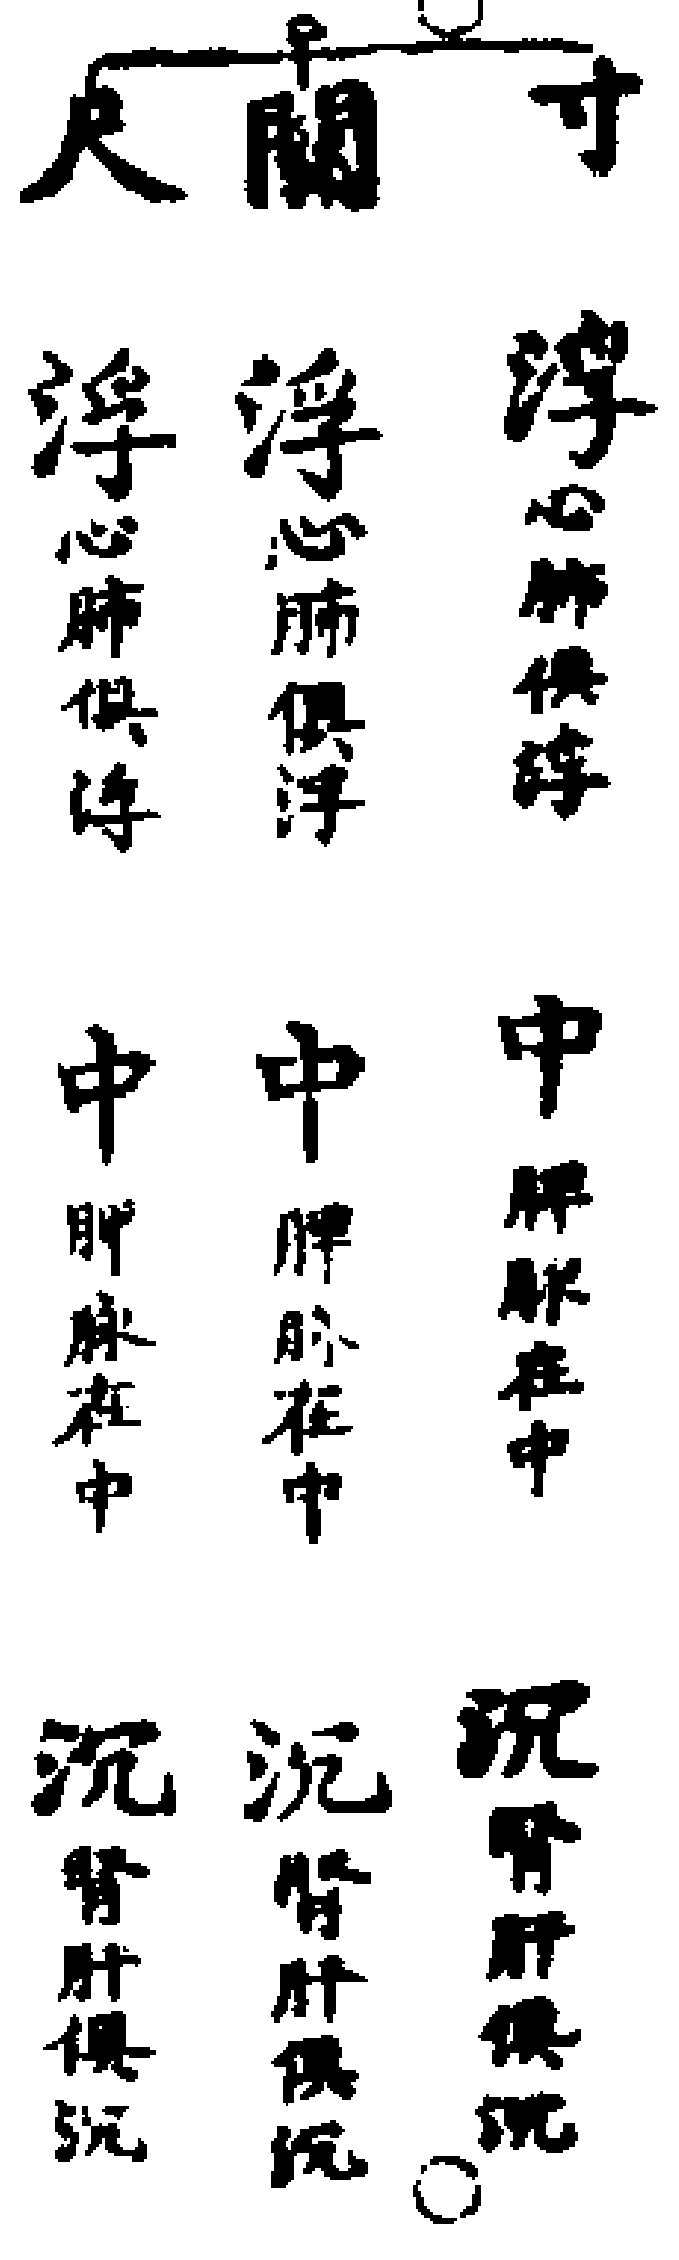 寸
浮
心肺俱浮
中
脾脉在中
沉
腎肝俱沉
關
浮
心肺俱浮
中
脾脉在中
沉
腎肝俱沉
尺
浮
心肺俱浮
中
脾脉在中
沉
腎肝俱沉